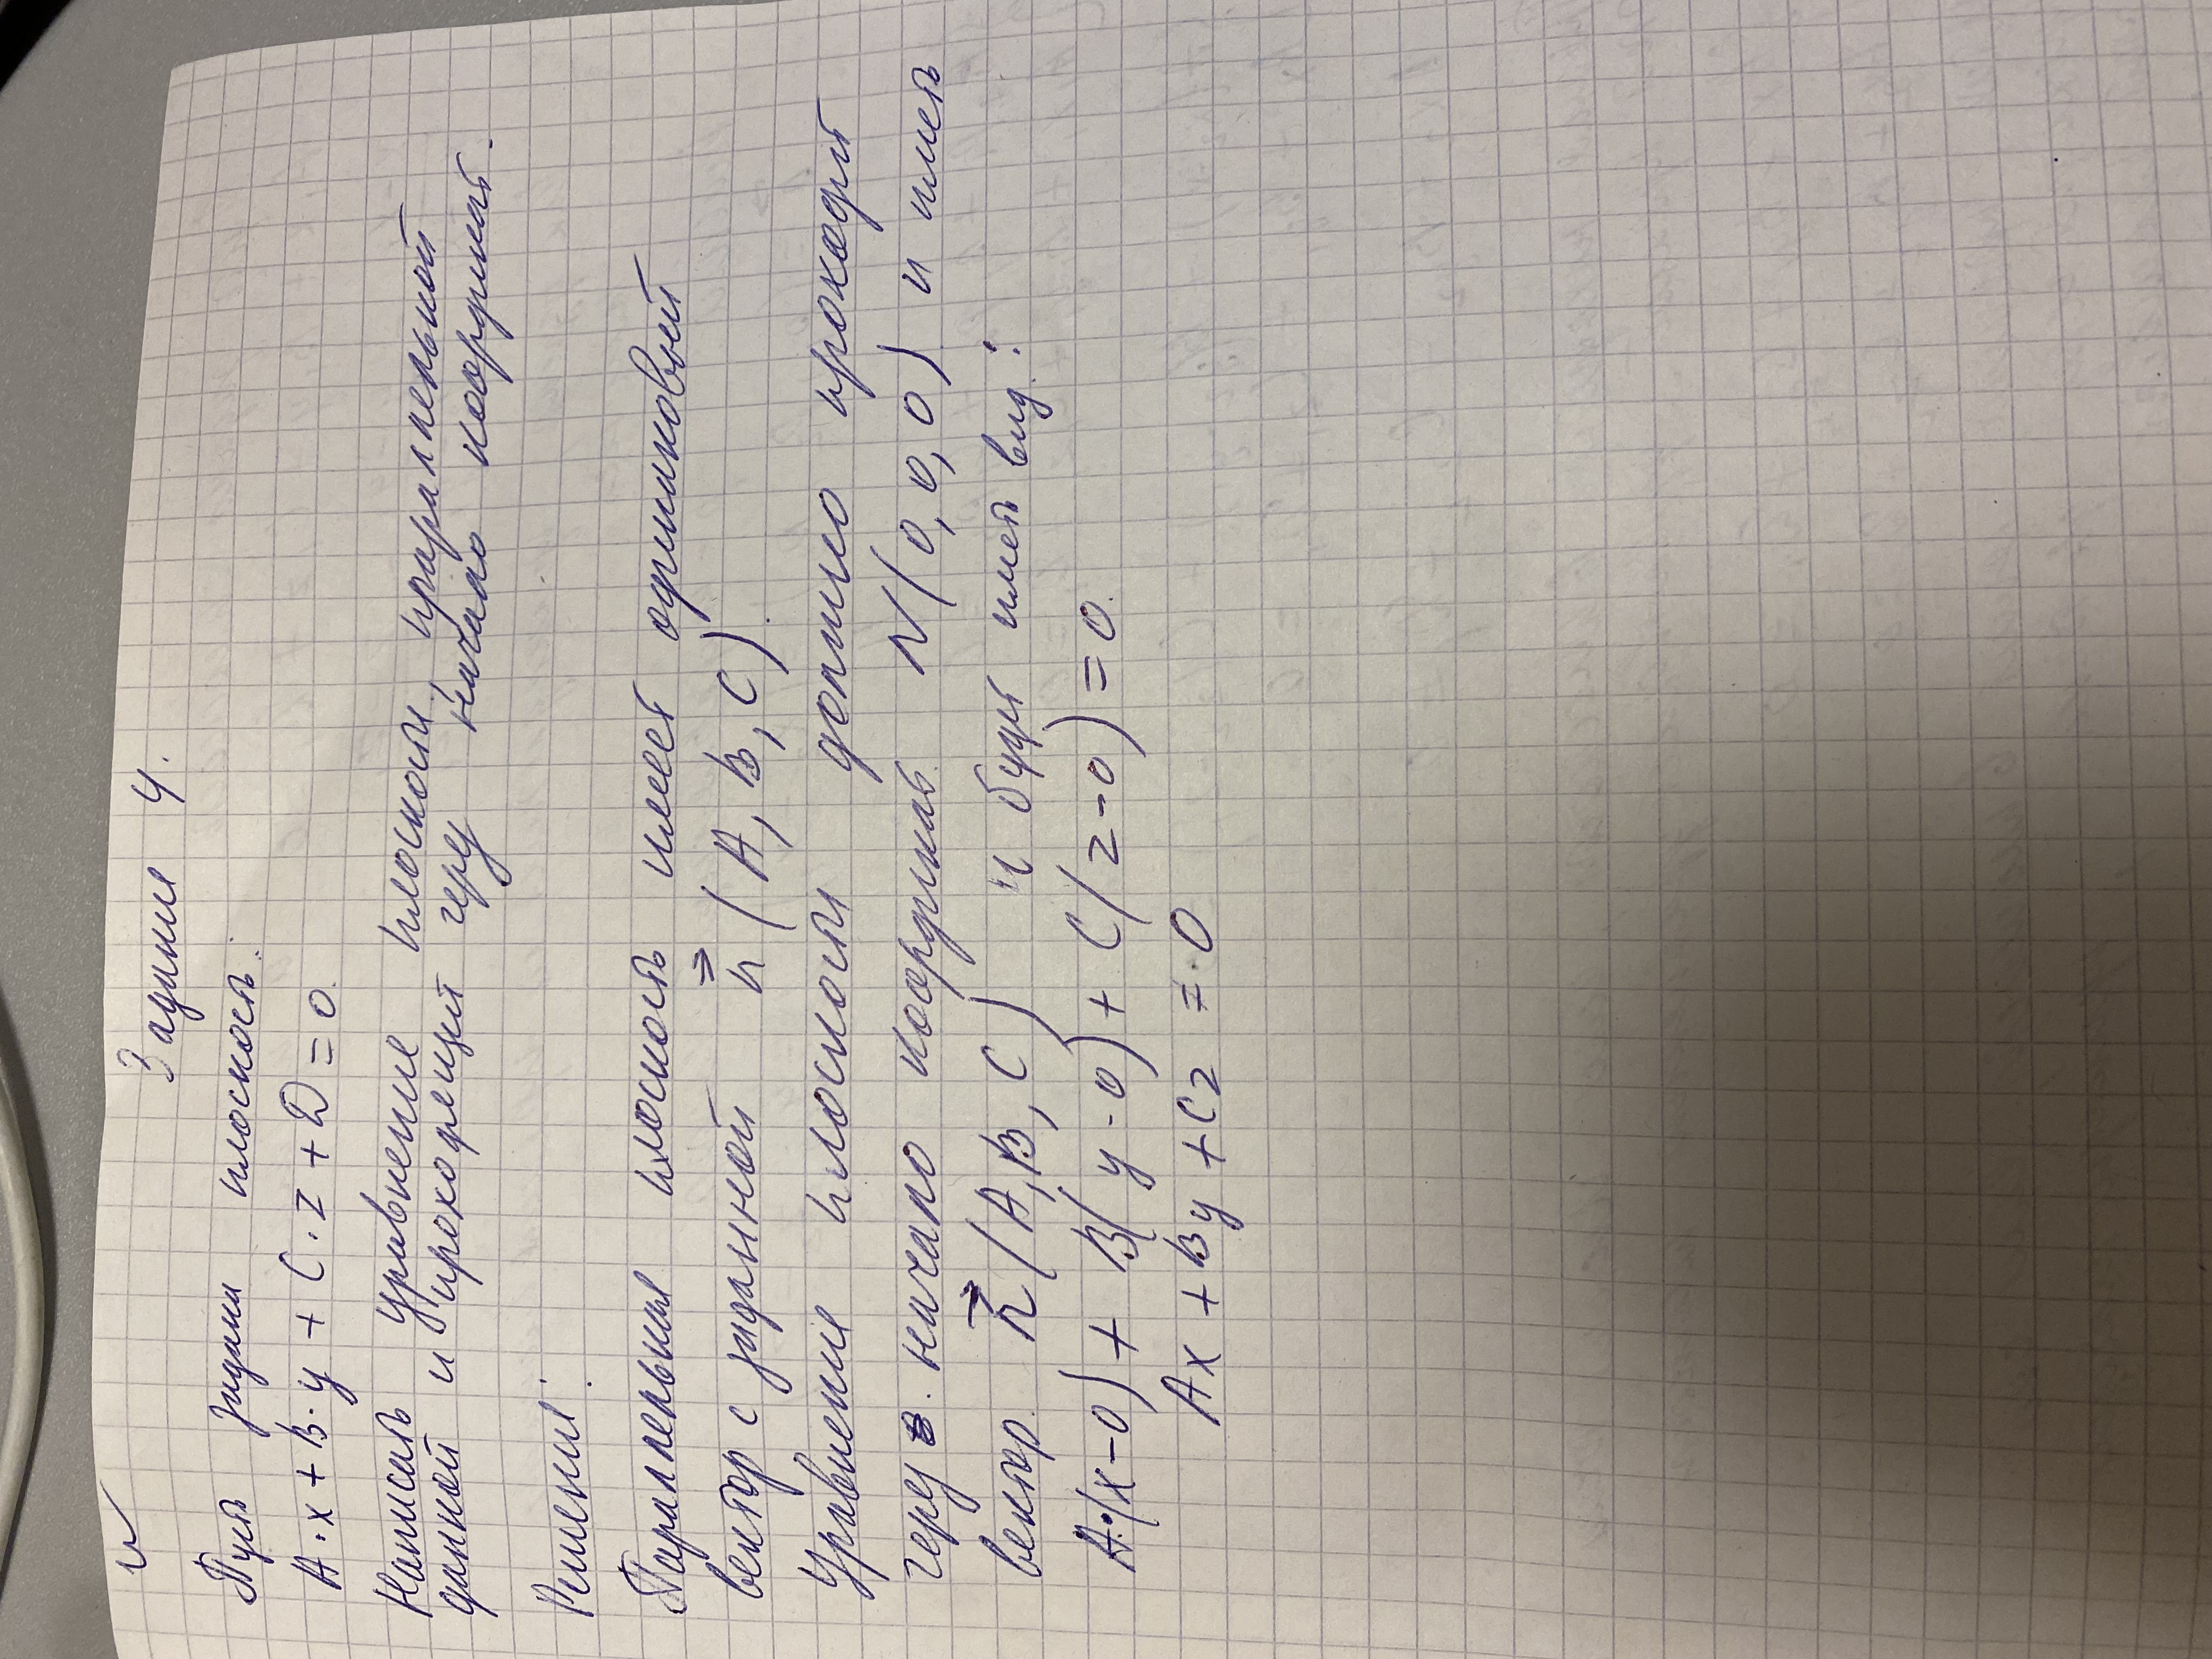 Задание 4.
Пусть задана плоскость:
A·x + B·y + C·z + D = 0.
Написать уравнение плоскости, прараллельной
данной и проходящей через начало координат.
Решение:
Параллельная плоскость имеет одинаковый
вектор с заданной n⃗ (A, B, C).
Уравнение плоскости должно проходит
через начало координат. N(0,0,0) и иметь
вектор. n⃗ (A, B, C) и будет иметь вид:
A·(x-0) + B(y-0) + C(z-0) = 0.
Ax + By + Cz = 0